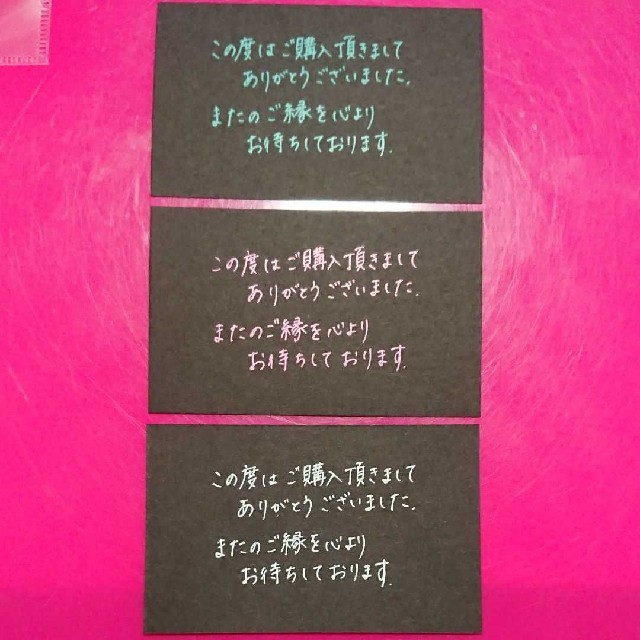 この度はご購入頂きまして
ありがとうございました.
またのご縁を心より
お待ちしております.
この度はご購入頂きまして
ありがとうございました.
またのご縁を心より
お待ちしております.
この度はご購入頂きまして
ありがとうございました.
またのご縁を心より
お待ちしております.